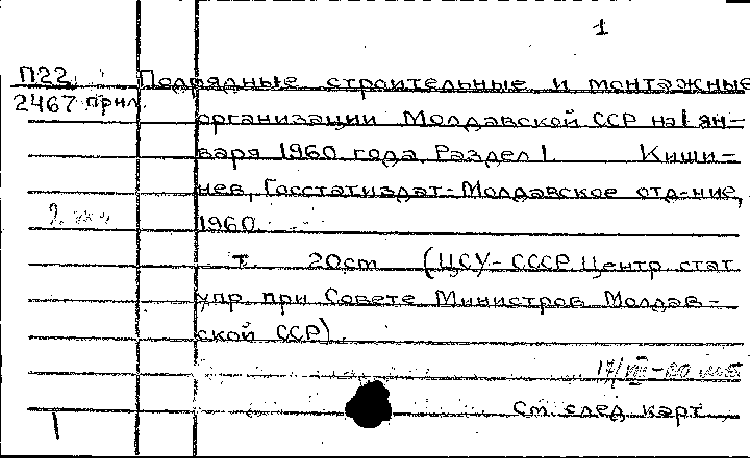 1
П22 Подрядные строительные и монтажные
2467 прил. организации Молдавской ССР на 1 ян-
варя 1960 года. Раздел 1. Киши-
нев, Госстатиздат-Молдавское отд-ние,
1960.
т. 20 cm (ЦСУ-СССР. Центр. стат.
упр. при Совете Министров Молдав-
ской ССР).
17/VIII-60
См. след. карт.